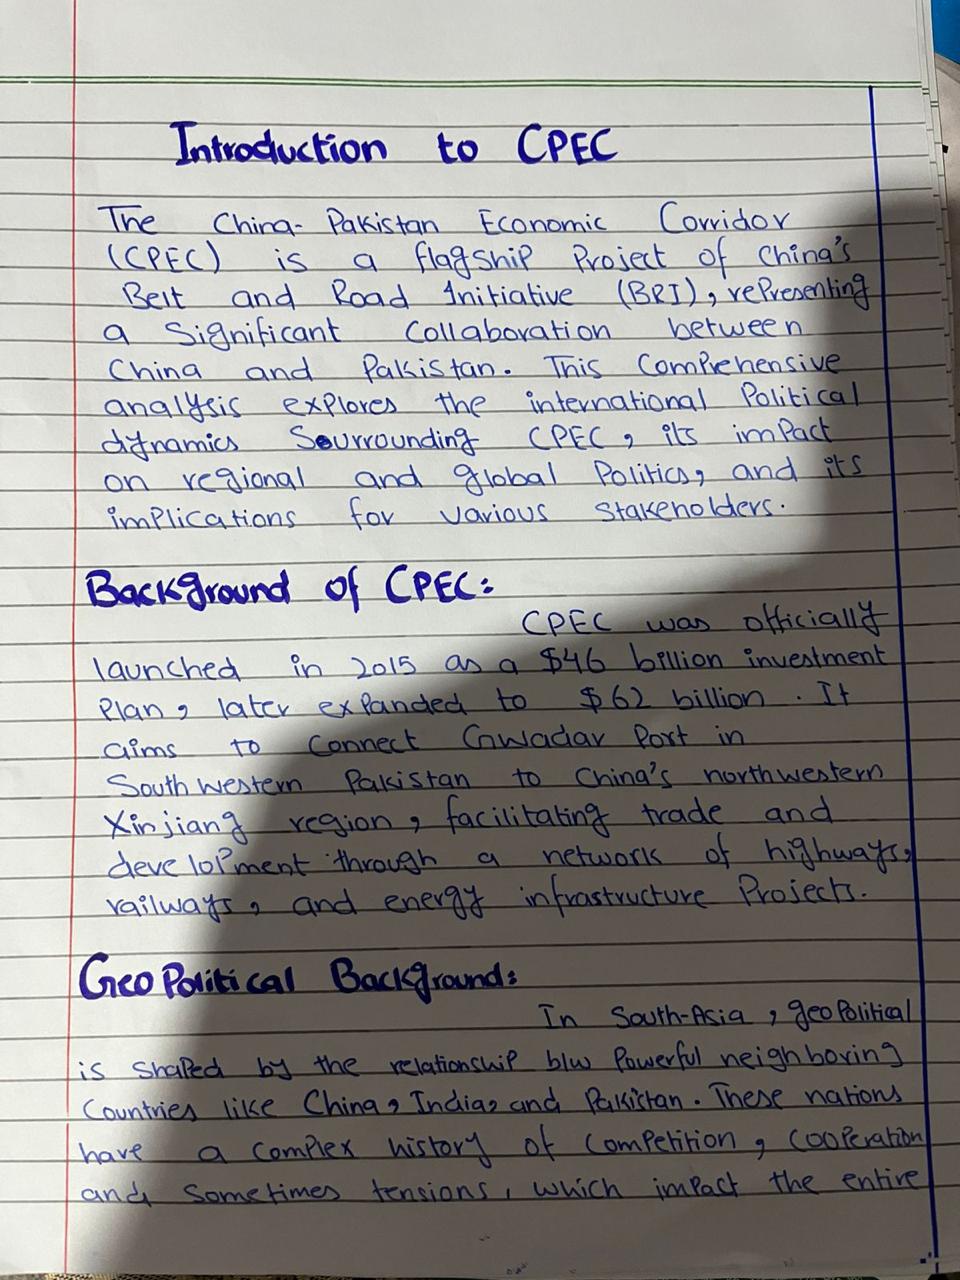 Introduction to CPEC
The China-Pakistan Economic Corridor
(CPEC) is a flagship Project of China's
Belt and Road Initiative (BRI), rePresenting
a Significant Collaboration between
China and Pakistan. This Comprehensive
analysis explores the international Political
dynamics Sourrounding CPEC, its impact
on regional and global Politics, and its
implications for various Stakeholders.
Background of CPEC:
CPEC was officially
launched in 2015 as a $46 billion investment
Plan, later expanded to $62 billion. It
aims to Connect Gwadar Port in
Southwestern Pakistan to China's northwestern
Xinjiang region, facilitating trade and
development through a network of highways,
railways, and energy infrastructure Projects.
GeoPolitical Background:
In South-Asia, geoPolitical
is shaped by the relationship b/w Powerful neighboring
Countries like China, India, and Pakistan. These nations
have a Complex history of Competition, Cooperation
and Sometimes tensions, which impact the entire